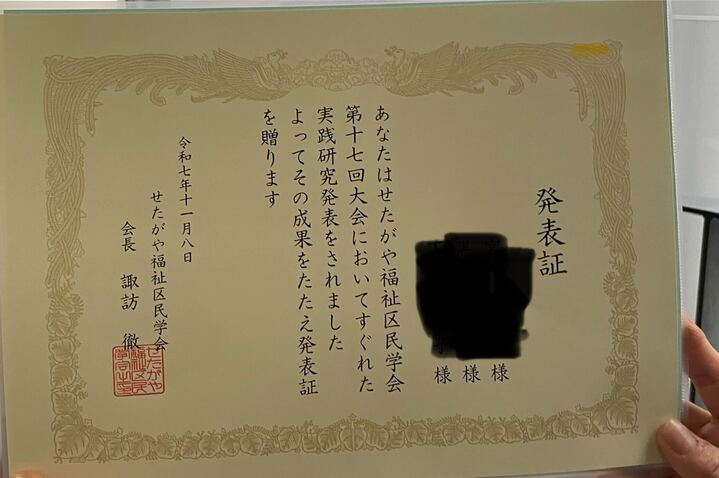 発表証
様 様 様
あなたはせたがや福祉区民学会
第十七回大会においてすぐれた
実践研究発表をされました
よってその成果をたたえ発表証
を贈ります
令和七年十一月八日
せたがや福祉区民学会
会長 諏訪 徹
せたがや
福祉区民